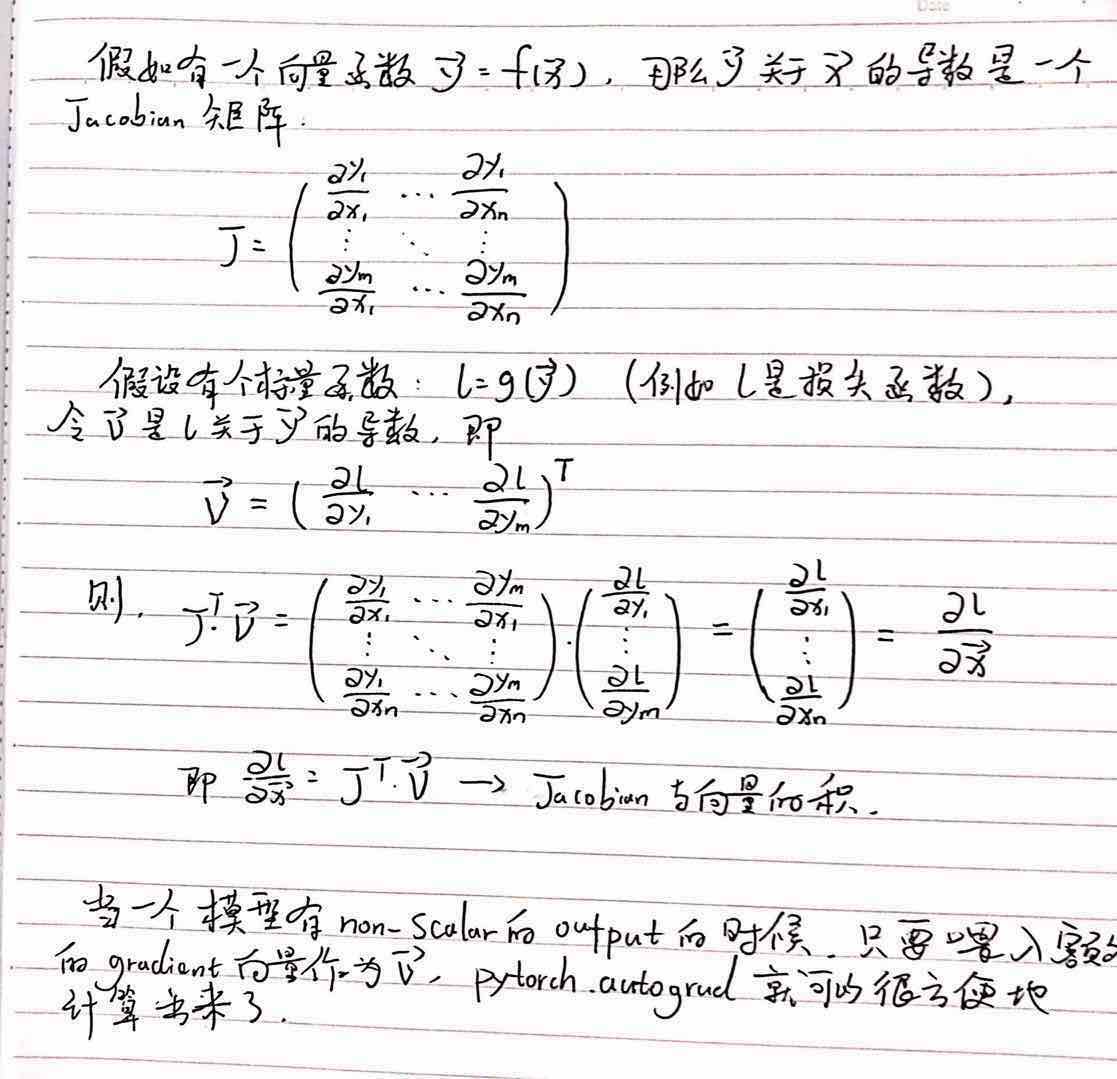 Date
假如有一个向量函数 y⃗ = f(x⃗), 那么 y⃗ 关于 x⃗ 的导数是一个
Jacobian 矩阵:
J = ( ∂y₁/∂x₁ ⋯ ∂y₁/∂xₙ
⋮ ⋱ ⋮
∂yₘ/∂x₁ ⋯ ∂yₘ/∂xₙ )
假设有个标量函数: l = g(y⃗) (例如 l 是损失函数),
令 v⃗ 是 l 关于 y⃗ 的导数, 即
v⃗ = ( ∂l/∂y₁ ⋯ ∂l/∂yₘ )ᵀ
则, Jᵀ·v⃗ = ( ∂y₁/∂x₁ ⋯ ∂yₘ/∂x₁ ⋮ ⋱ ⋮ ∂y₁/∂xₙ ⋯ ∂yₘ/∂xₙ ) · ( ∂l/∂y₁ ⋮ ∂l/∂yₘ ) = ( ∂l/∂x₁ ⋮ ∂l/∂xₙ ) = ∂l/∂x⃗
即 ∂l/∂x⃗ = Jᵀ·v⃗ → Jacobian 与向量的积.
当一个模型有 non-scalar 的 output 的时候, 只要喂入额外
的 gradient 向量作为 v⃗, pytorch.autograd 就可以很方便地
计算出来了.